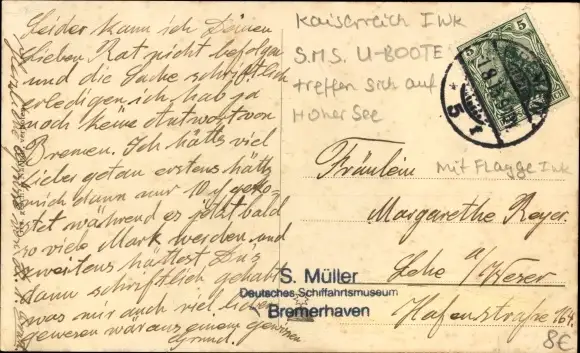 Leider kann ich Deinen
lieben Rat nicht befolgen
und die Sache schriftlich
erledigen, ich hab ja
noch keine Antwort von
Bremen. Ich hätte viel
lieber getan erstens hätte
mich dann nur 10 ₰ geko-
stet während es jetzt bald
so viele Mark werden und
zweitens hättest Du's
dann schriftlich gehabt
was mir auch viel lieber
gewesen wär aus einem gewissen
Grund.
Kaiserreich Ink
S.M.S. U-BOOTE
treffen sich auf
Hoher See
5
5
Mit Flagge Ink
Fräulein
Margarethe Reyer.
Lehe a/Weser
Hafenstraße 164.
S. Müller
Deutsches Schiffahrtsmuseum
Bremerhaven
8€